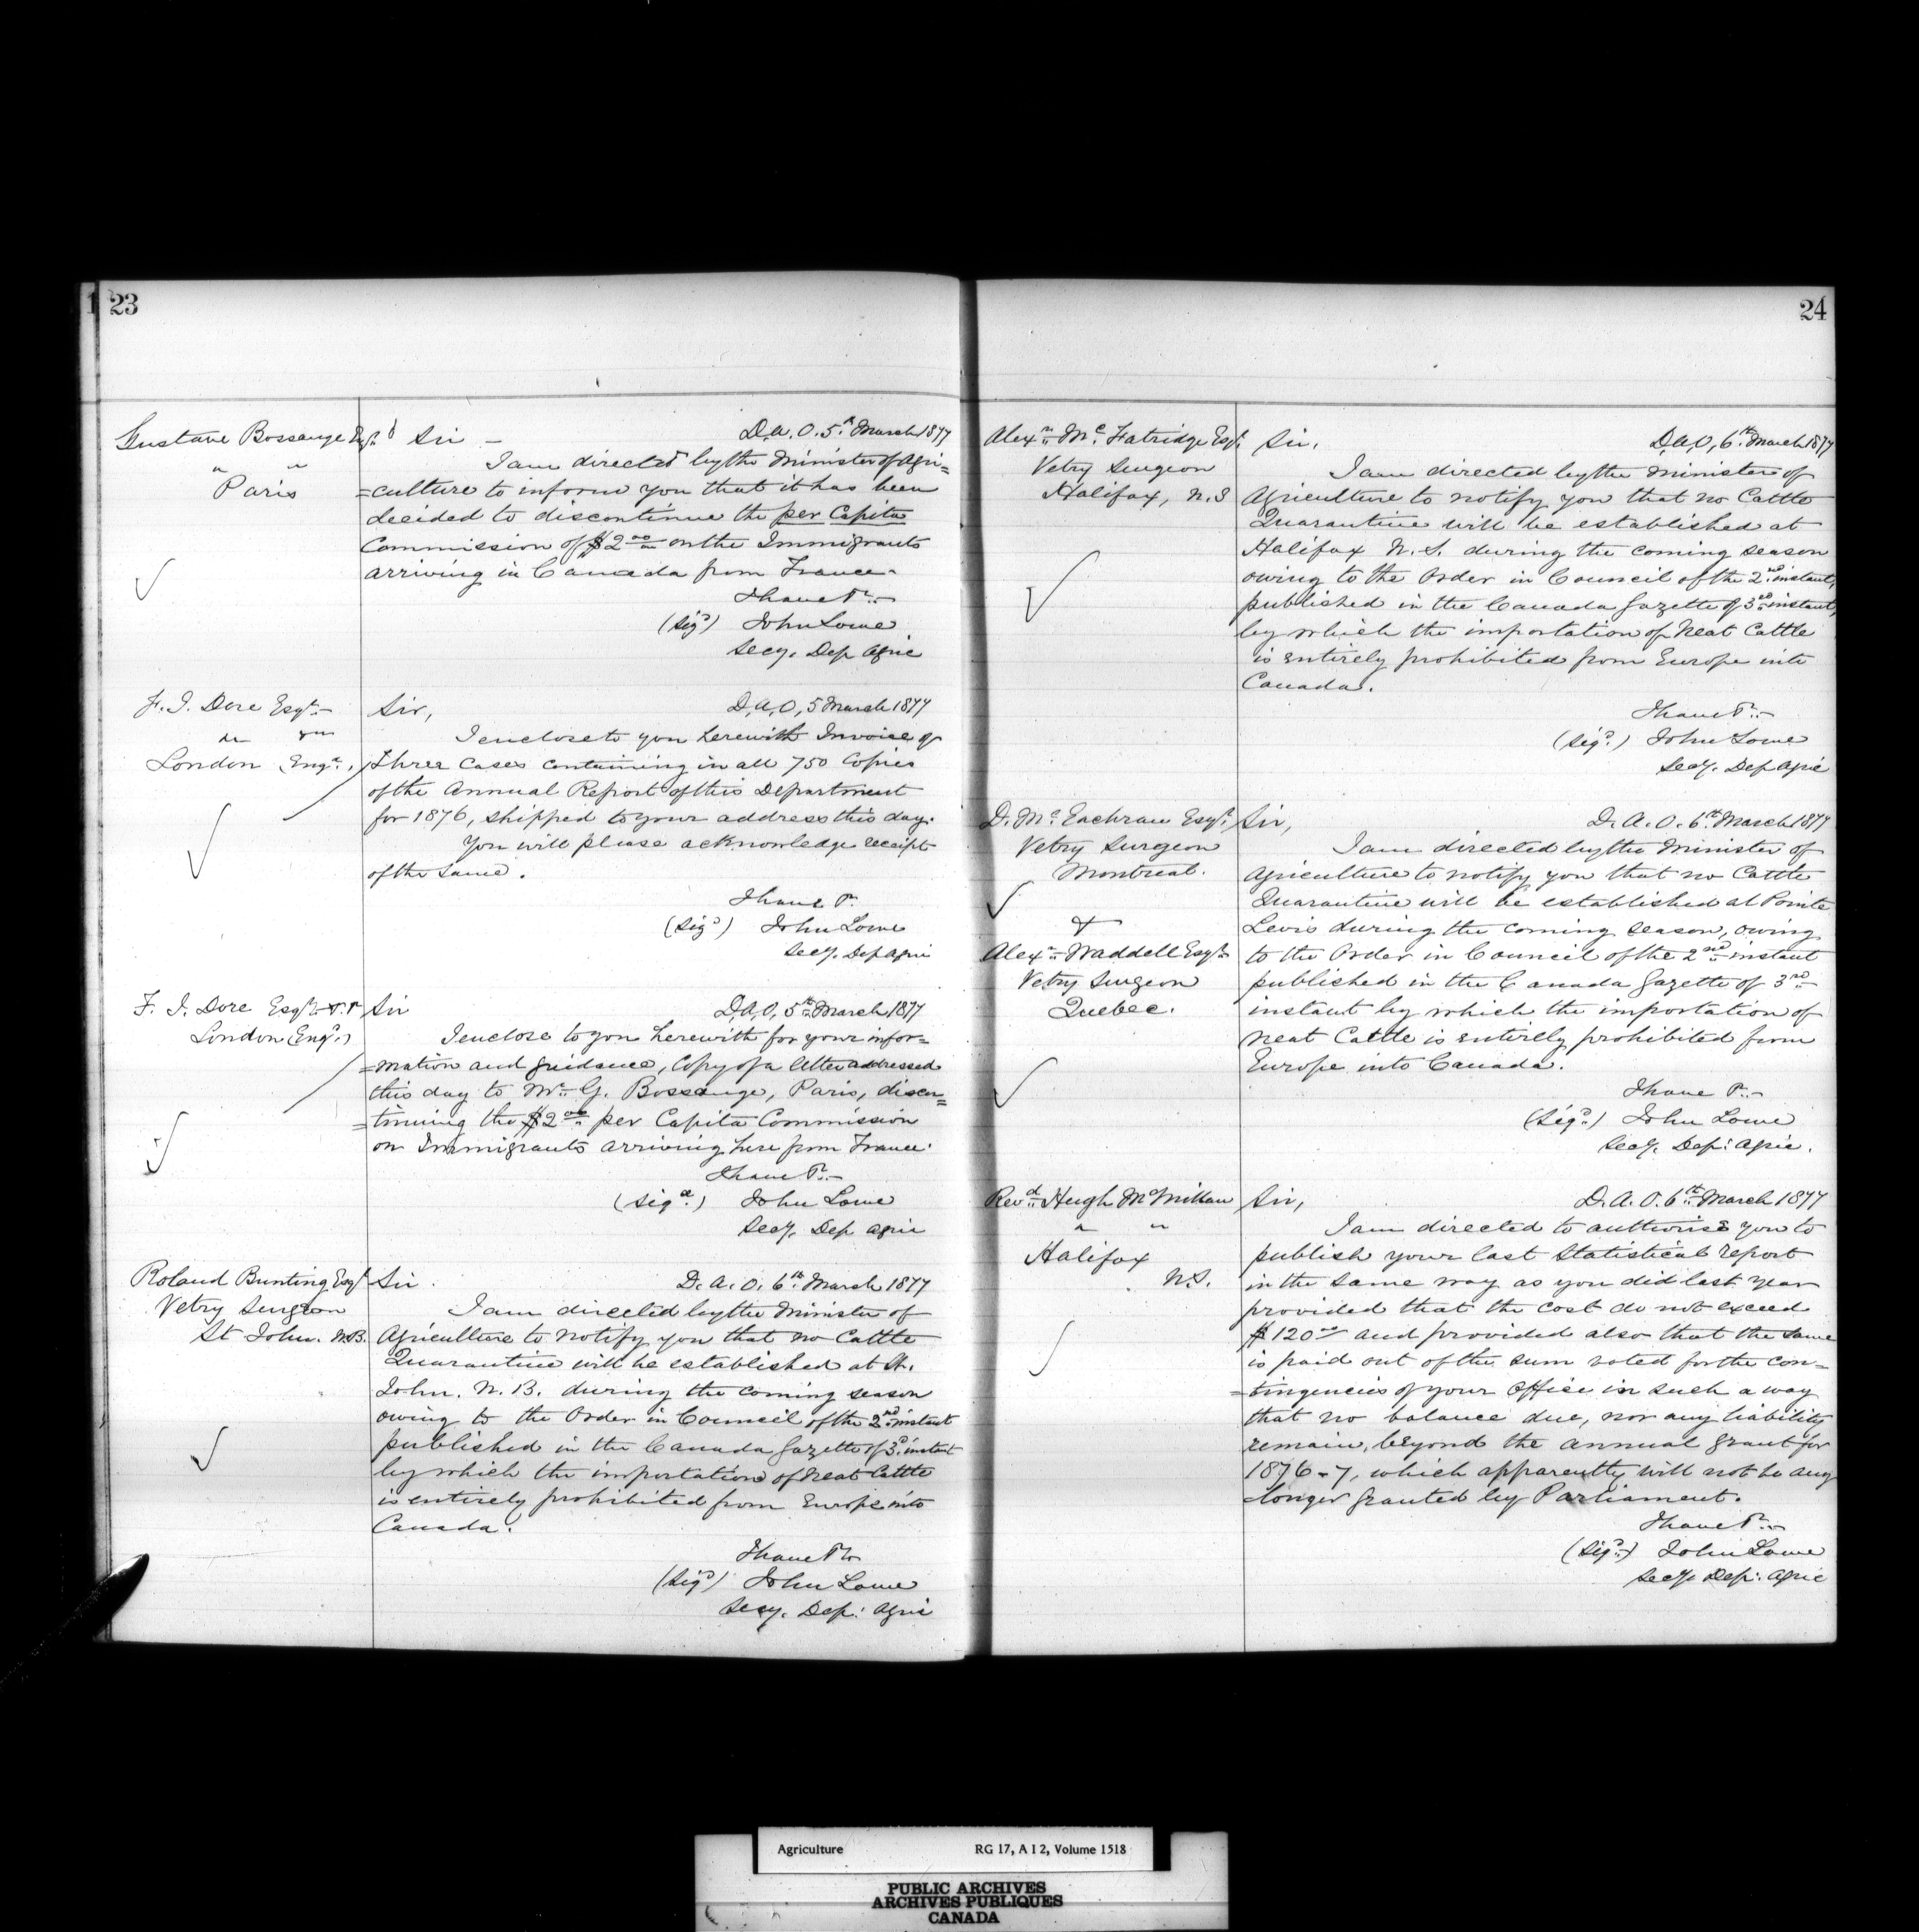 1 23
Gustave Bossange Esqr.
" "
Paris
Sir – D.A.O. 5th March 1877
I am directed by the Minister of Agri=
=culture to inform you that it has been
decided to discontinue the per Capita
Commission of $2.00 on the Immigrants
arriving in Canada from France.
I have Tr.
(Sigd) John Lowe
Secy. Dep Agric
F. J. Dore Esqr.
London Engd.
Sir, D.A.O, 5 March 1877
I enclose to you herewith Invoice of
three Cases containing in all 750 Copies
of the Annual Report of this Department
for 1876, shipped to your address this day.
You will please acknowledge receipt
of the same.
I have Tr.
(Sigd) John Lowe
Secy. Dep Agric
F. J. Dore Esqr.
London (Engd.)
Sir D.A.O, 5th March 1877
I enclose to you herewith for your infor=
=mation and guidance, Copy of a letter addressed
this day to Mr. G. Bossange, Paris, discon=
=tinuing the $2.00 per Capita Commission
on Immigrants arriving here from France.
I have Tr.
(Sigd.) John Lowe
Secy. Dep Agric
Roland Bunting Esqr
Vetry Surgeon
St John. N.B.
Sir. D.A.O. 6th March 1877
I am directed by the Minister of
Agriculture to notify you that no Cattle
Quarantine will be established at St.
John. N.B. during the coming season
owing to the Order in Council of the 2nd instant
published in the Canada Gazette of 3d. instant
by which the importation of Neat Cattle
is entirely prohibited from Europe into
Canada.
I have Tr
(Sigd) John Lowe
Secy. Dep: Agric
24
Alexr. Mc. Fatridge Esqr.
Vetry Surgeon
Halifax, N.S
Sir, D.A.O, 6th. March 1877
I am directed by the Minister of
Agriculture to notify you that no Cattle
Quarantine will be established at
Halifax N.S. during the coming season
owing to the Order in Council of the 2nd. instant,
published in the Canada Gazette of 3rd instant,
by which the importation of Neat Cattle
is entirely prohibited from Europe into
Canada.
I have Tr.
(Sigd.) John Lowe
Secy. Dep Agric
D. Mc. Eachran Esqr.
Vetry Surgeon
Montreal.
&
Alexr. Waddell Esqr.
Vetry Surgeon
Quebec.
Sir, D.A.O. 6th March 1877
I am directed by the Minister of
Agriculture to notify you that no Cattle
Quarantine will be established at Pointe
Levis during the coming season, owing
to the Order in Council of the 2nd instant
published in the Canada Gazette of 3rd
instant by which the importation of
Neat Cattle is entirely prohibited from
Europe into Canada.
I have Tr.
(Sigd.) John Lowe
Secy. Dep: Agric.
Revd. Hugh McMillan
" "
Halifax
N.S.
Sir, D.A.O. 6th March 1877
I am directed to authorise you to
publish your last Statistical report
in the same way as you did last year
provided that the cost do not exceed
$120.00 and provided also that the same
is paid out of the sum voted for the con=
=tingencies of your Office in such a way
that no balance due, nor any liability
remain, beyond the annual grant for
1876-7, which apparently will not be any
longer granted by Parliament.
I have Tr.
(Sigd.) John Lowe
Secy. Dep: Agric
Agriculture RG 17, A I 2, Volume 1518
PUBLIC ARCHIVES
ARCHIVES PUBLIQUES
CANADA